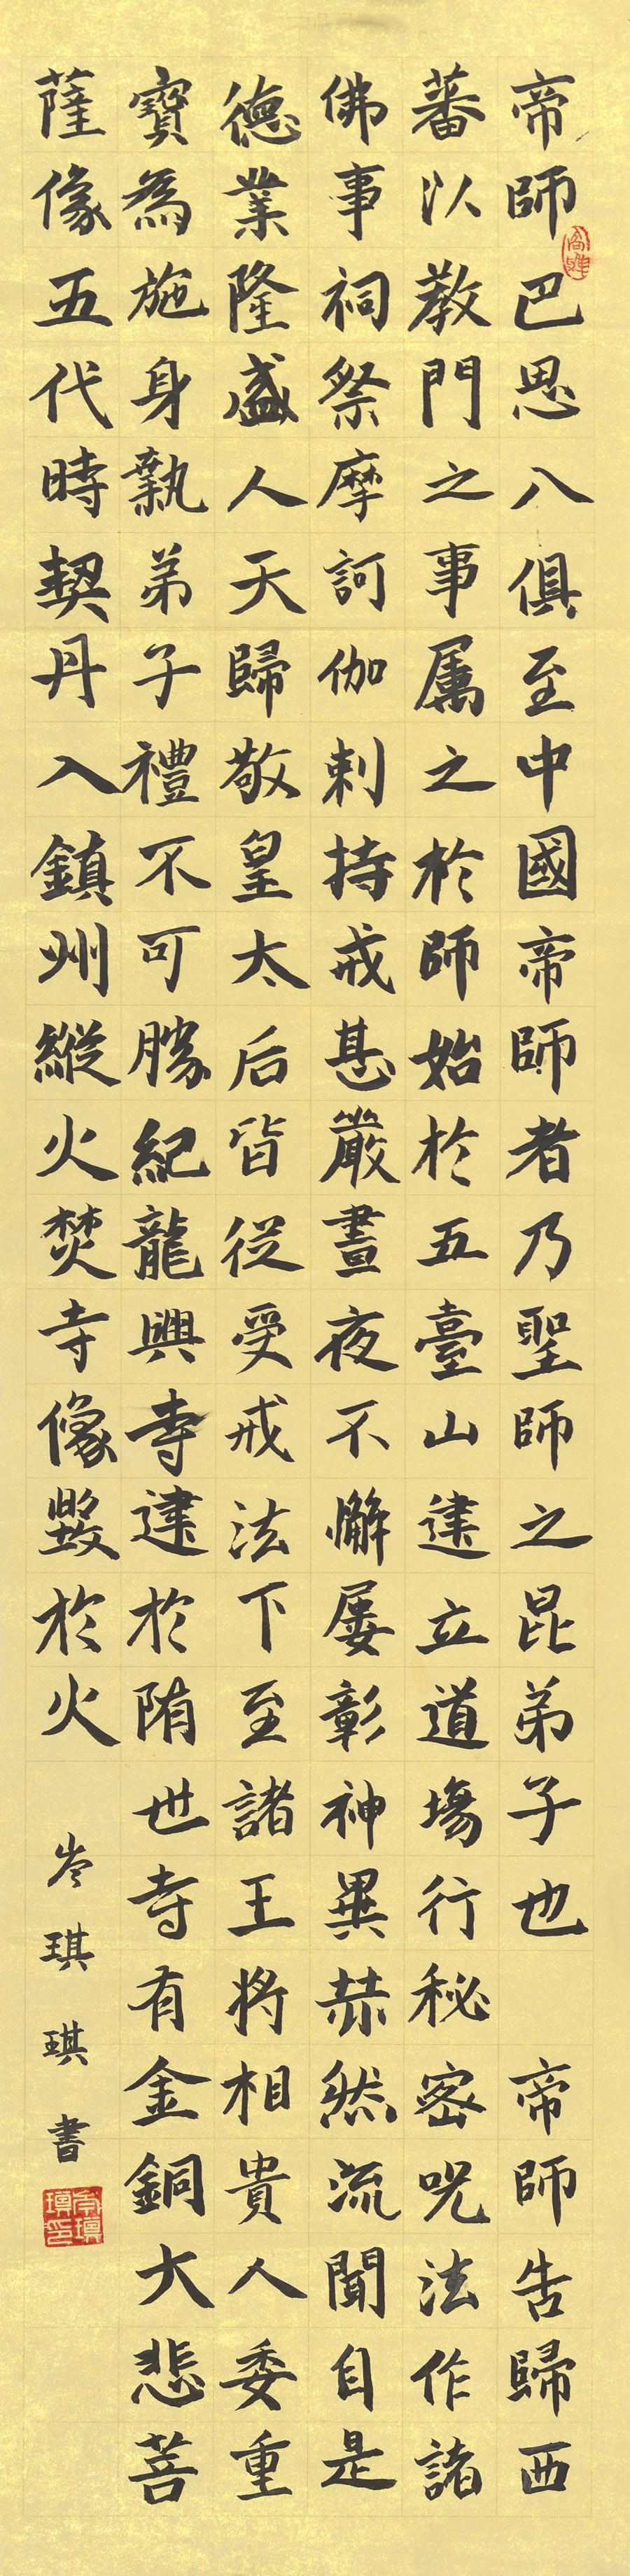 帝師巴思八俱至中國帝師者乃聖師之昆弟子也 帝師告歸西
蕃以教門之事属之於師始於五臺山建立道場行秘密呪法作諸
佛事祠祭摩訶伽剌持戒甚嚴晝夜不懈屡彰神異赫然流聞自是
德業隆盛人天歸敬皇太后皆從受戒法下至諸王將相貴人委重
寶為施身執弟子禮不可勝紀龍興寺建於隋世寺有金銅大悲菩
薩像五代時契丹入鎮州縱火焚寺像毀於火
岑琪琪書